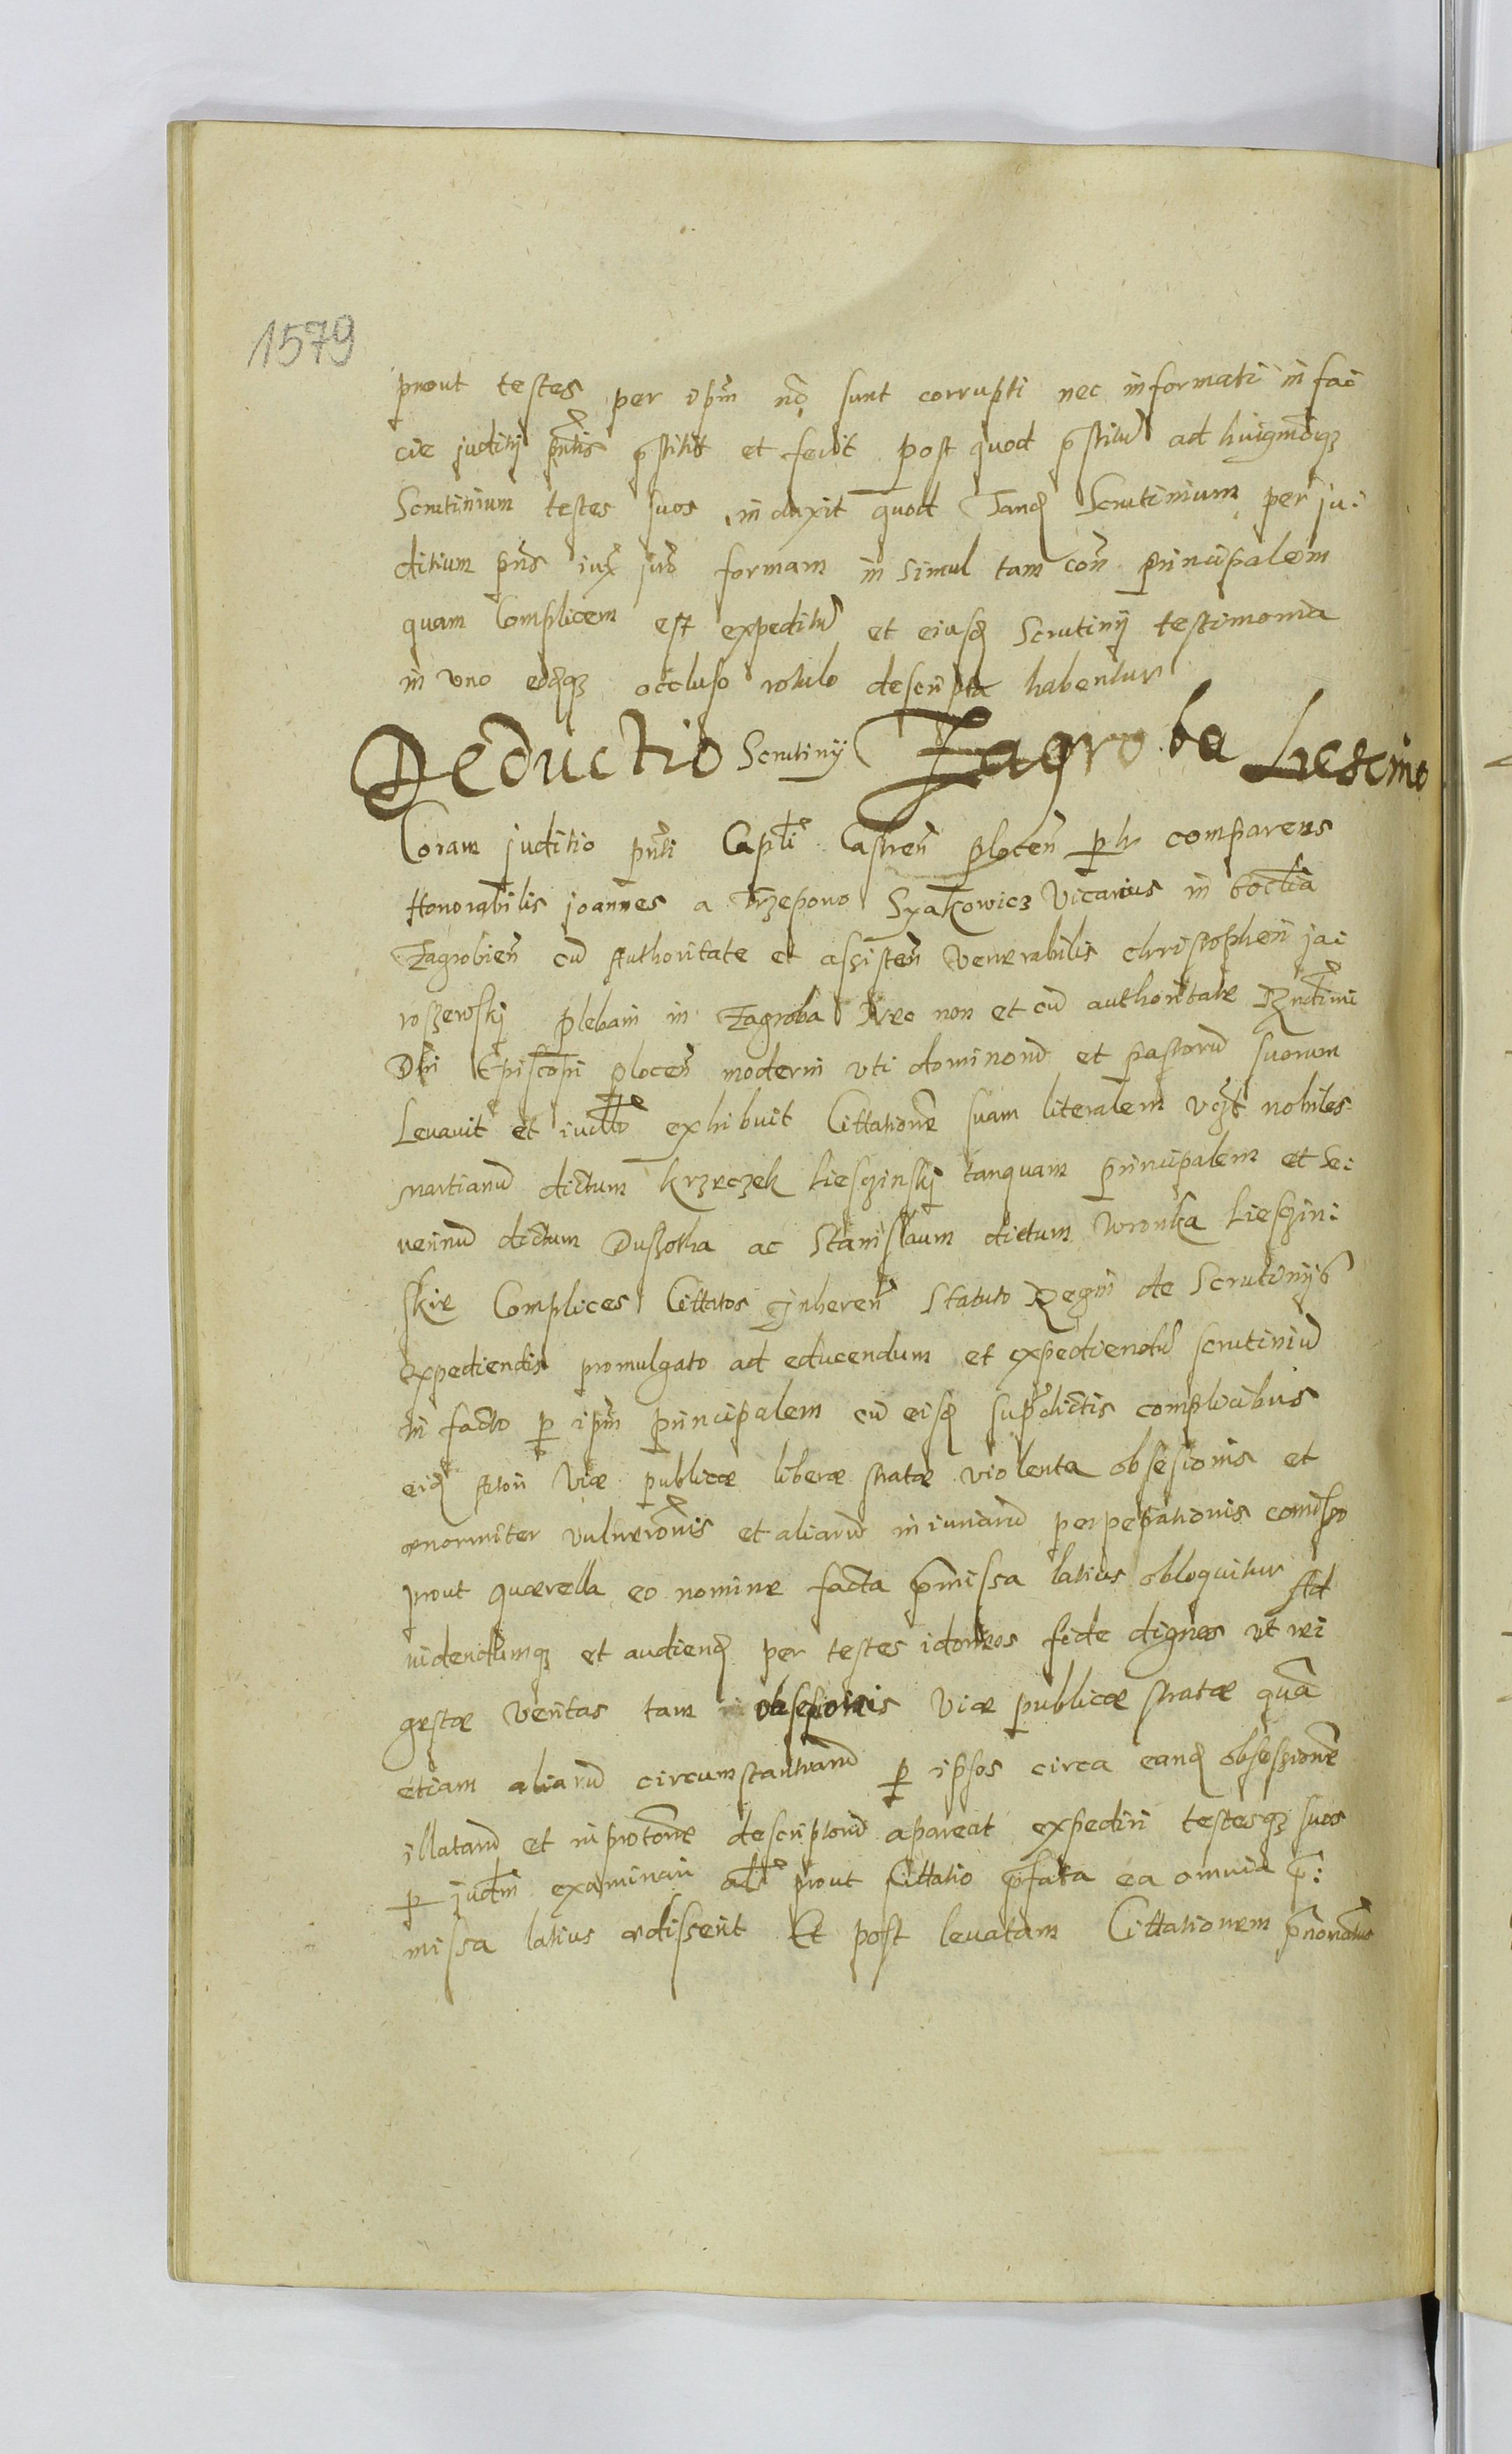 1579
prout testes per ipm̃ nõ sunt corrupti nec informati in fac
cie juditij pñtis p̃stitit et fecit post quod p̃stitũ ad huigmõiqʒ
Scrutinium testes suos induxit quod Tandʒ Scrutinium per ju:
ditium pñs iuxᵃ juris formam in simul tam coñ principalem
quam Complicem est expeditũ et eiusdʒ Scrutinij testimonia
in uno eodʒqʒ occluso rotulo descripta habentur
Deductio Scrutinij Zagroba Liescino
Coram juditio pñti Capłi Castreñ ploceñ plr comparens
Honorabilis joannes a Trzepowo Syakowicz Vicarius in Eccłia
Zagrobieñ cũ Authoritate et assisteñ Venerabilis christopheri jac
roszewskj plebani in Zagroba Nec non et cũ authoritate Rñdimi
Dñi Episcopi ploceñ moderni uti dominorũ et pastorũ suorum
Levavit et iudłłr exhibuit Cittationẽ suam literalem vcʒt nobiles
martianũ dictum krzeczek Liesczinskj tanquam principalem et Se:
uerinũ dictum Duszotha ac Stanislaum dictum Wronka Liesczin:
skie Complices Cittatos Inhereñ Statuto Regni de Scrutinijs
expediendis promulgato ad educendum et expediendũ scrutiniũ
in facto p ipm̃ principalem cũ eisdʒ supradictis complicibus
eidʒ Actori viæ publicæ liberæ stratæ violenta obsesionis et
ænormiter vulnerõnis et aliarũ iniuriarũ perpetrationis comisso
prout quærella eo nomine facta p̃missa latius obloquitur Ad
videndumqʒ et audiendʒ per testes idoneos fide dignos ut rei
gestæ veritas tam obsesionis viæ publicæ stratæ quã
etiam aliarũ circumstantiarũ p ipsos circa eandʒ obsessionẽ
illatarũ et in protõne descriptorũ apareat expediri testesqʒ suos
p judm̃ examinari alr̃ prout Cittatio p̃fata ea omnia p̃:
missa latius ædisserit Et post levatam Cittationem p̃nominatus